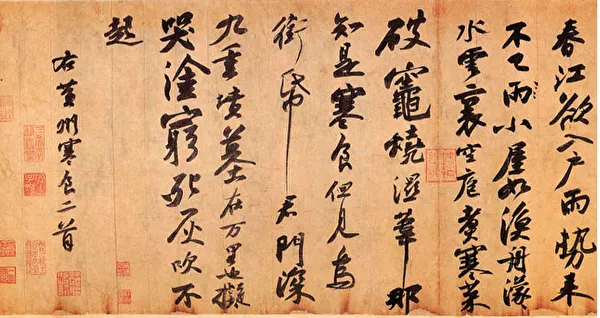 春江欲入戶雨勢来
不已雨小屋如漁舟濛
水雲裏空庖煑寒菜
破竈燒濕葦那
知是寒食但見烏
銜帋君門深
九重墳墓在万里也擬
哭塗窮死灰吹不
起
右黃州寒食二首